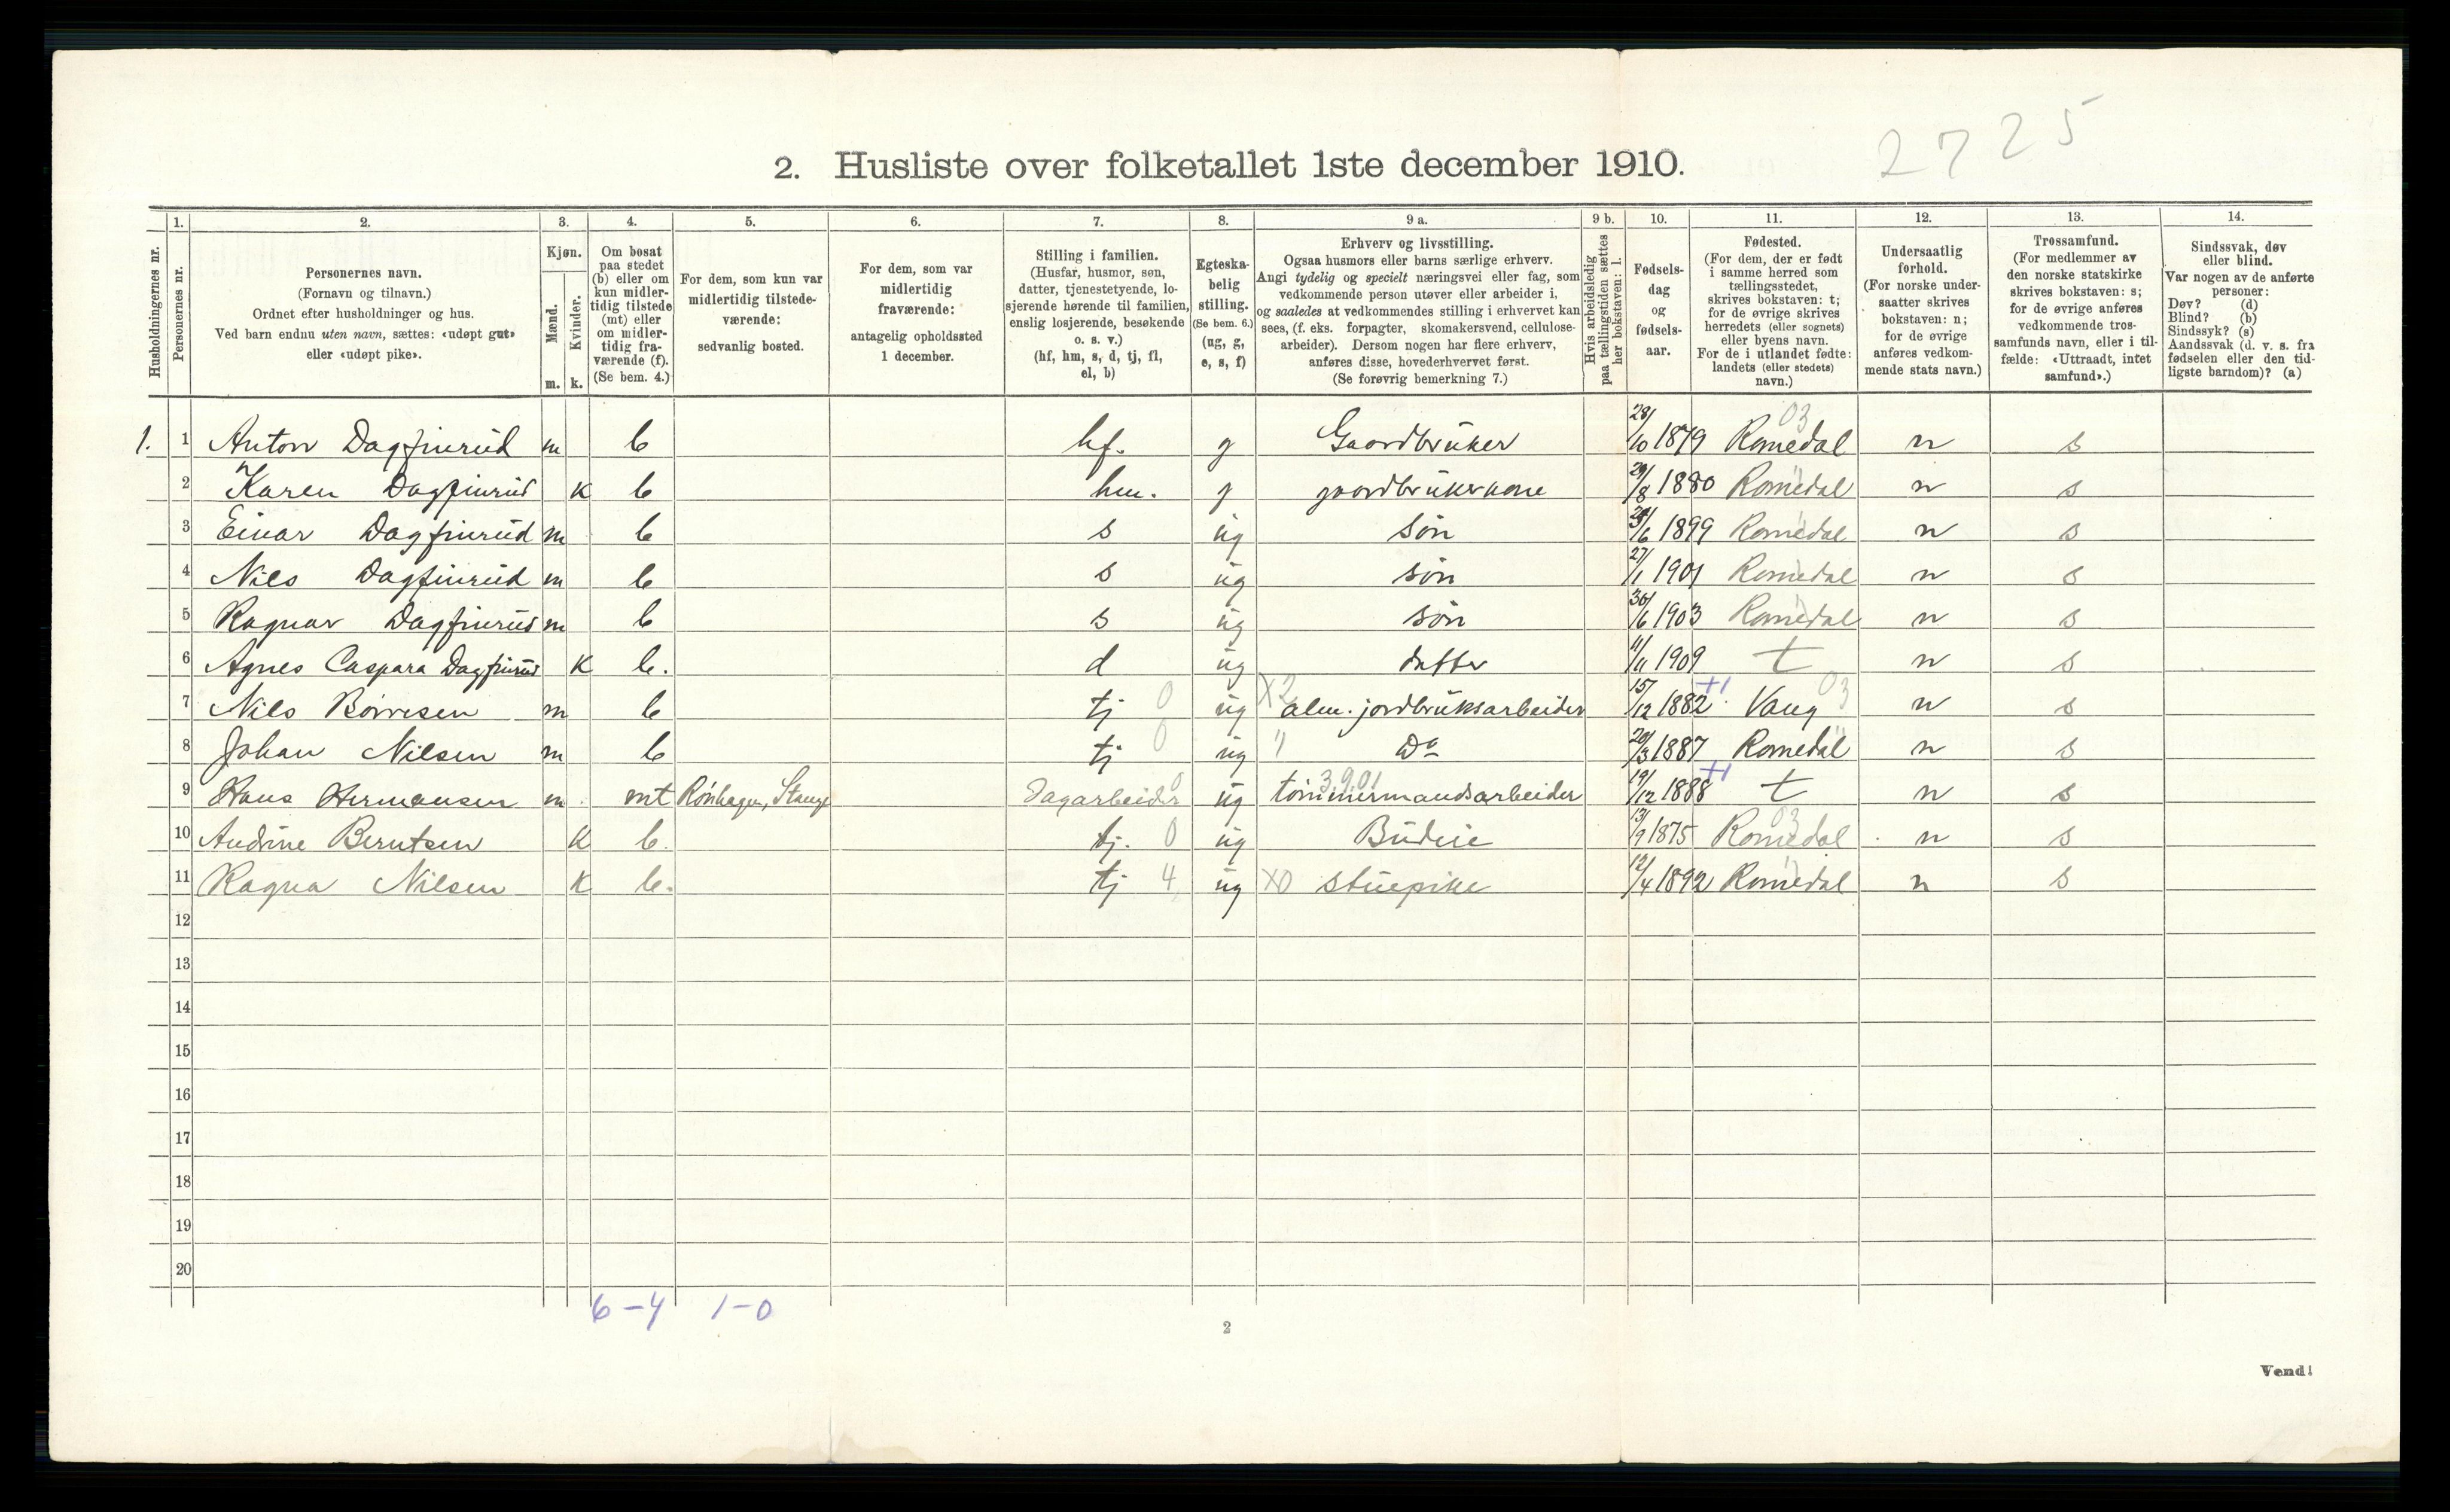 2725
2. Husliste over folketallet 1ste december 1910.
1. 2. 3. 4. 5. 6. 7. 8. 9 a. 9 b. 10. 11. 12. 13. 14.
Husholdningernes nr.
Personernes nr.
Personernes navn.
(Fornavn og tilnavn.)
Ordnet efter husholdninger og hus.
Ved barn endnu uten navn, sættes: «udøpt gut»
eller «udøpt pike».
Kjøn.
Mænd.
Kvinder.
m. k.
Om bosat
paa stedet
(b) eller om
kun midler-
tidig tilstede
(mt) eller
om midler-
tidig fra-
værende (f).
(Se bem. 4.)
For dem, som kun var
midlertidig tilstede-
værende:
sedvanlig bosted.
For dem, som var
midlertidig
fraværende:
antagelig opholdssted
1 december.
Stilling i familien.
(Husfar, husmor, søn,
datter, tjenestetyende, lo-
sjerende hørende til familien,
enslig losjerende, besøkende
o. s. v.)
(hf, hm, s, d, tj, fl,
el, b)
Egteska-
belig
stilling.
(Se bem. 6.)
(ug, g,
e, s, f)
Erhverv og livsstilling.
Ogsaa husmors eller barns særlige erhverv.
Angi tydelig og specielt næringsvei eller fag, som
vedkommende person utøver eller arbeider i,
og saaledes at vedkommendes stilling i erhvervet kan
sees, (f. eks. forpagter, skomakersvend, cellulose-
arbeider). Dersom nogen har flere erhverv,
anføres disse, hovederhvervet først.
(Se forøvrig bemerkning 7.)
Hvis arbeidsledig
paa tællingstiden sættes
her bokstaven: l.
Fødsels-
dag
og
fødsels-
aar.
Fødested.
(For dem, der er født
i samme herred som
tællingsstedet,
skrives bokstaven: t;
for de øvrige skrives
herredets (eller sognets)
eller byens navn.
For de i utlandet fødte:
landets (eller stedets)
navn.)
Undersaatlig
forhold.
(For norske under-
saatter skrives
bokstaven: n;
for de øvrige
anføres vedkom-
mende stats navn.)
Trossamfund.
(For medlemmer av
den norske statskirke
skrives bokstaven: s;
for de øvrige anføres
vedkommende tros-
samfunds navn, eller i til-
fælde: «Uttraadt, intet
samfund».)
Sindssvak, døv
eller blind.
Var nogen av de anførte
personer:
Døv? (d)
Blind? (b)
Sindssyk? (s)
Aandssvak (d. v. s. fra
fødselen eller den tid-
ligste barndom)? (a)
1. 1 Anton Dagfinrud m b hf. g Gaardbruker 28/10 1879 03 Romedal n s
2 Karen Dagfinrud K b hm. g gaardbrukerkone 29/8 1880 Romedal n s
3 Einar Dagfinrud m b s ug søn /6 1899 Romedal n s
4 Nils Dagfinrud m b s ug søn 27/1 1901 Romedal n s
5 Ragnar Dagfinrud m b s ug søn 30/6 1903 Romedal n s
6 Agnes Caspara Dagfinrud K b. d ug datter 11/11 1909 t n s
7 Nils Børresen m b tj 0 ug X2 alm. jordbruksarbeider 15/12 1882 +1 Vang 03 n s
8 Johan Nilsen m b tj 0 ug " Do 20/3 1887 Romedal " n s
9 Hans Hermansen m mt Rønhagen, Stange Dagarbeider 0 ug 3901 tømmermandsarbeider 19/12 1888 +1 t n s
10 Andrine Berntsen K b. tj. 0 ug Budeie 13/9 1875 03 Romedal n s
11 Ragna Nilsen K b. tj 4 ug X0 stuepike 12/4 1892 Romedal n s
12
13
14
15
16
17
18
19
20
6-4 1-0
2
Vend!